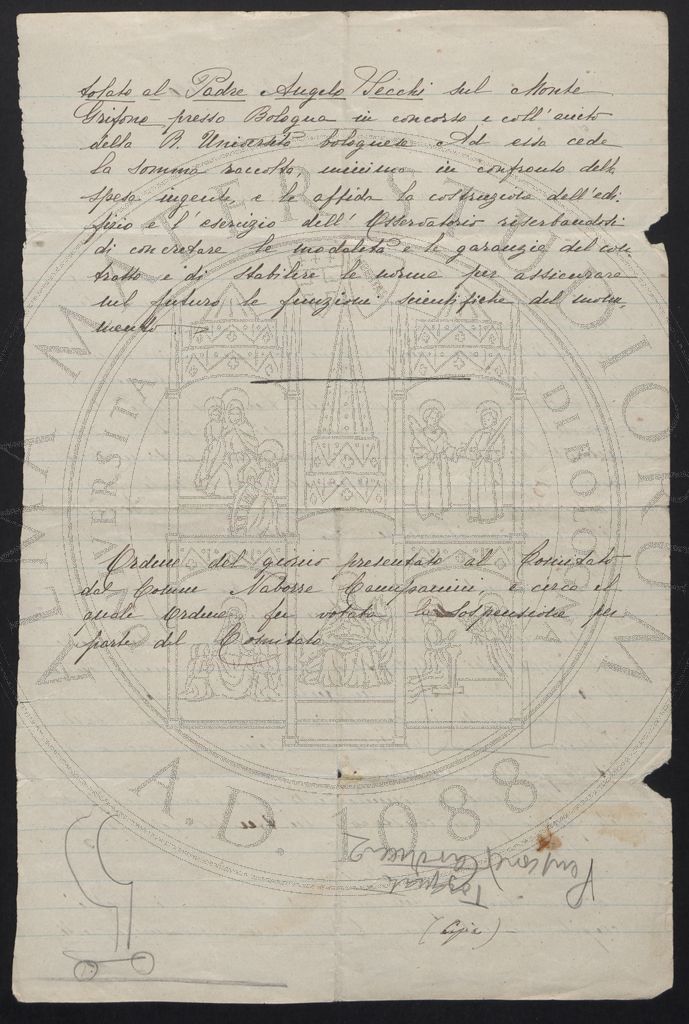 tolato al Padre Angelo Secchi sul Monte
Grifone presso Bologna in concorso e coll'aiuto
della R. Università bolognese Ad essa cede
la somma raccolta, minima in confronto della
spesa ingente, e le affida la costruzione dell'edi-
fizio e l'esercizio dell'Osservatorio riserbandosi
di concretare le modalità e le garanzie del con
tratto e di stabilire le norme per assicurare
nel futuro le funzioni scientifiche del monu-
mento
Ordine del giorno presentato al Comitato
dal Comm Naborre Campanini, e circa il
quale ordine fu votata la sospensione per
parte del Comitato
(Copia)
ALMA MATER STUDIORUM
UNIVERSITÀ DI BOLOGNA
A.D. 1088